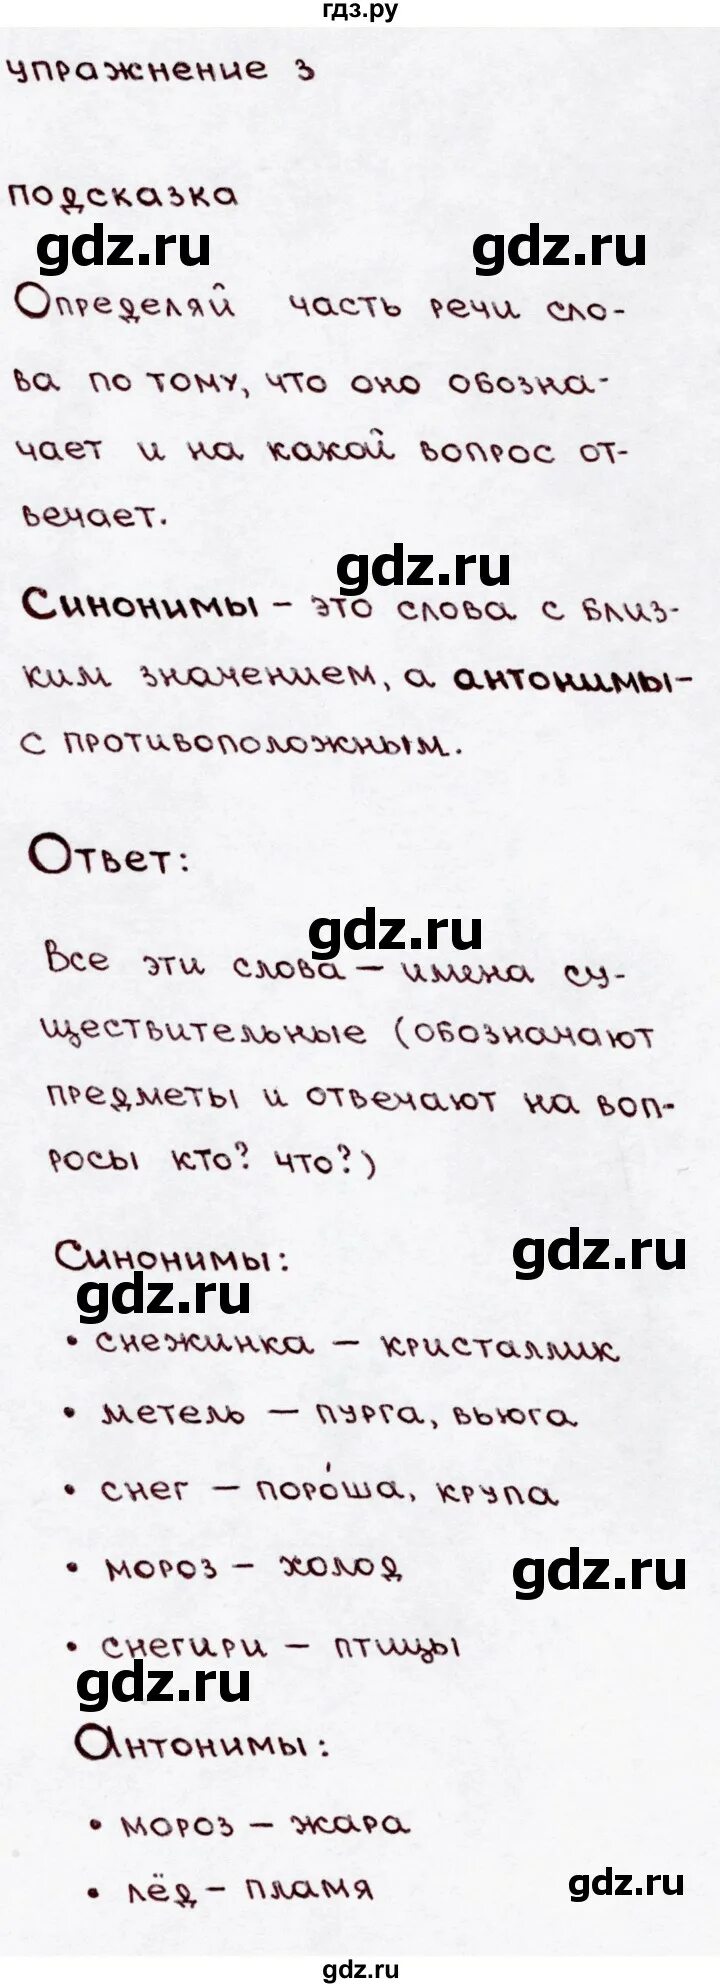 гдз.ру
упражнение 3
подсказка
gdz.ru gdz.ru
Определяй часть речи сло-
ва по тому, что оно обозна-
чает и на какой вопрос от-
вечает.
gdz.ru
Синонимы – это слова с близ-
ким значением, а антонимы-
с противоположным.
Ответ:
gdz.ru
Все эти слова – имена су-
ществительные (обозначают
предметы и отвечают на воп-
росы кто? что?)
Синонимы:
gdz.ru
gdz.ru
• снежинка – кристаллик
• метель – пурга, вьюга
• снег – поро́ша, крупа
• мороз – холод
gdz.ru
• снегири – птицы
gdz.ru
Антонимы:
• мороз – жара
• лёд – пламя
gdz.ru
gdz.ru